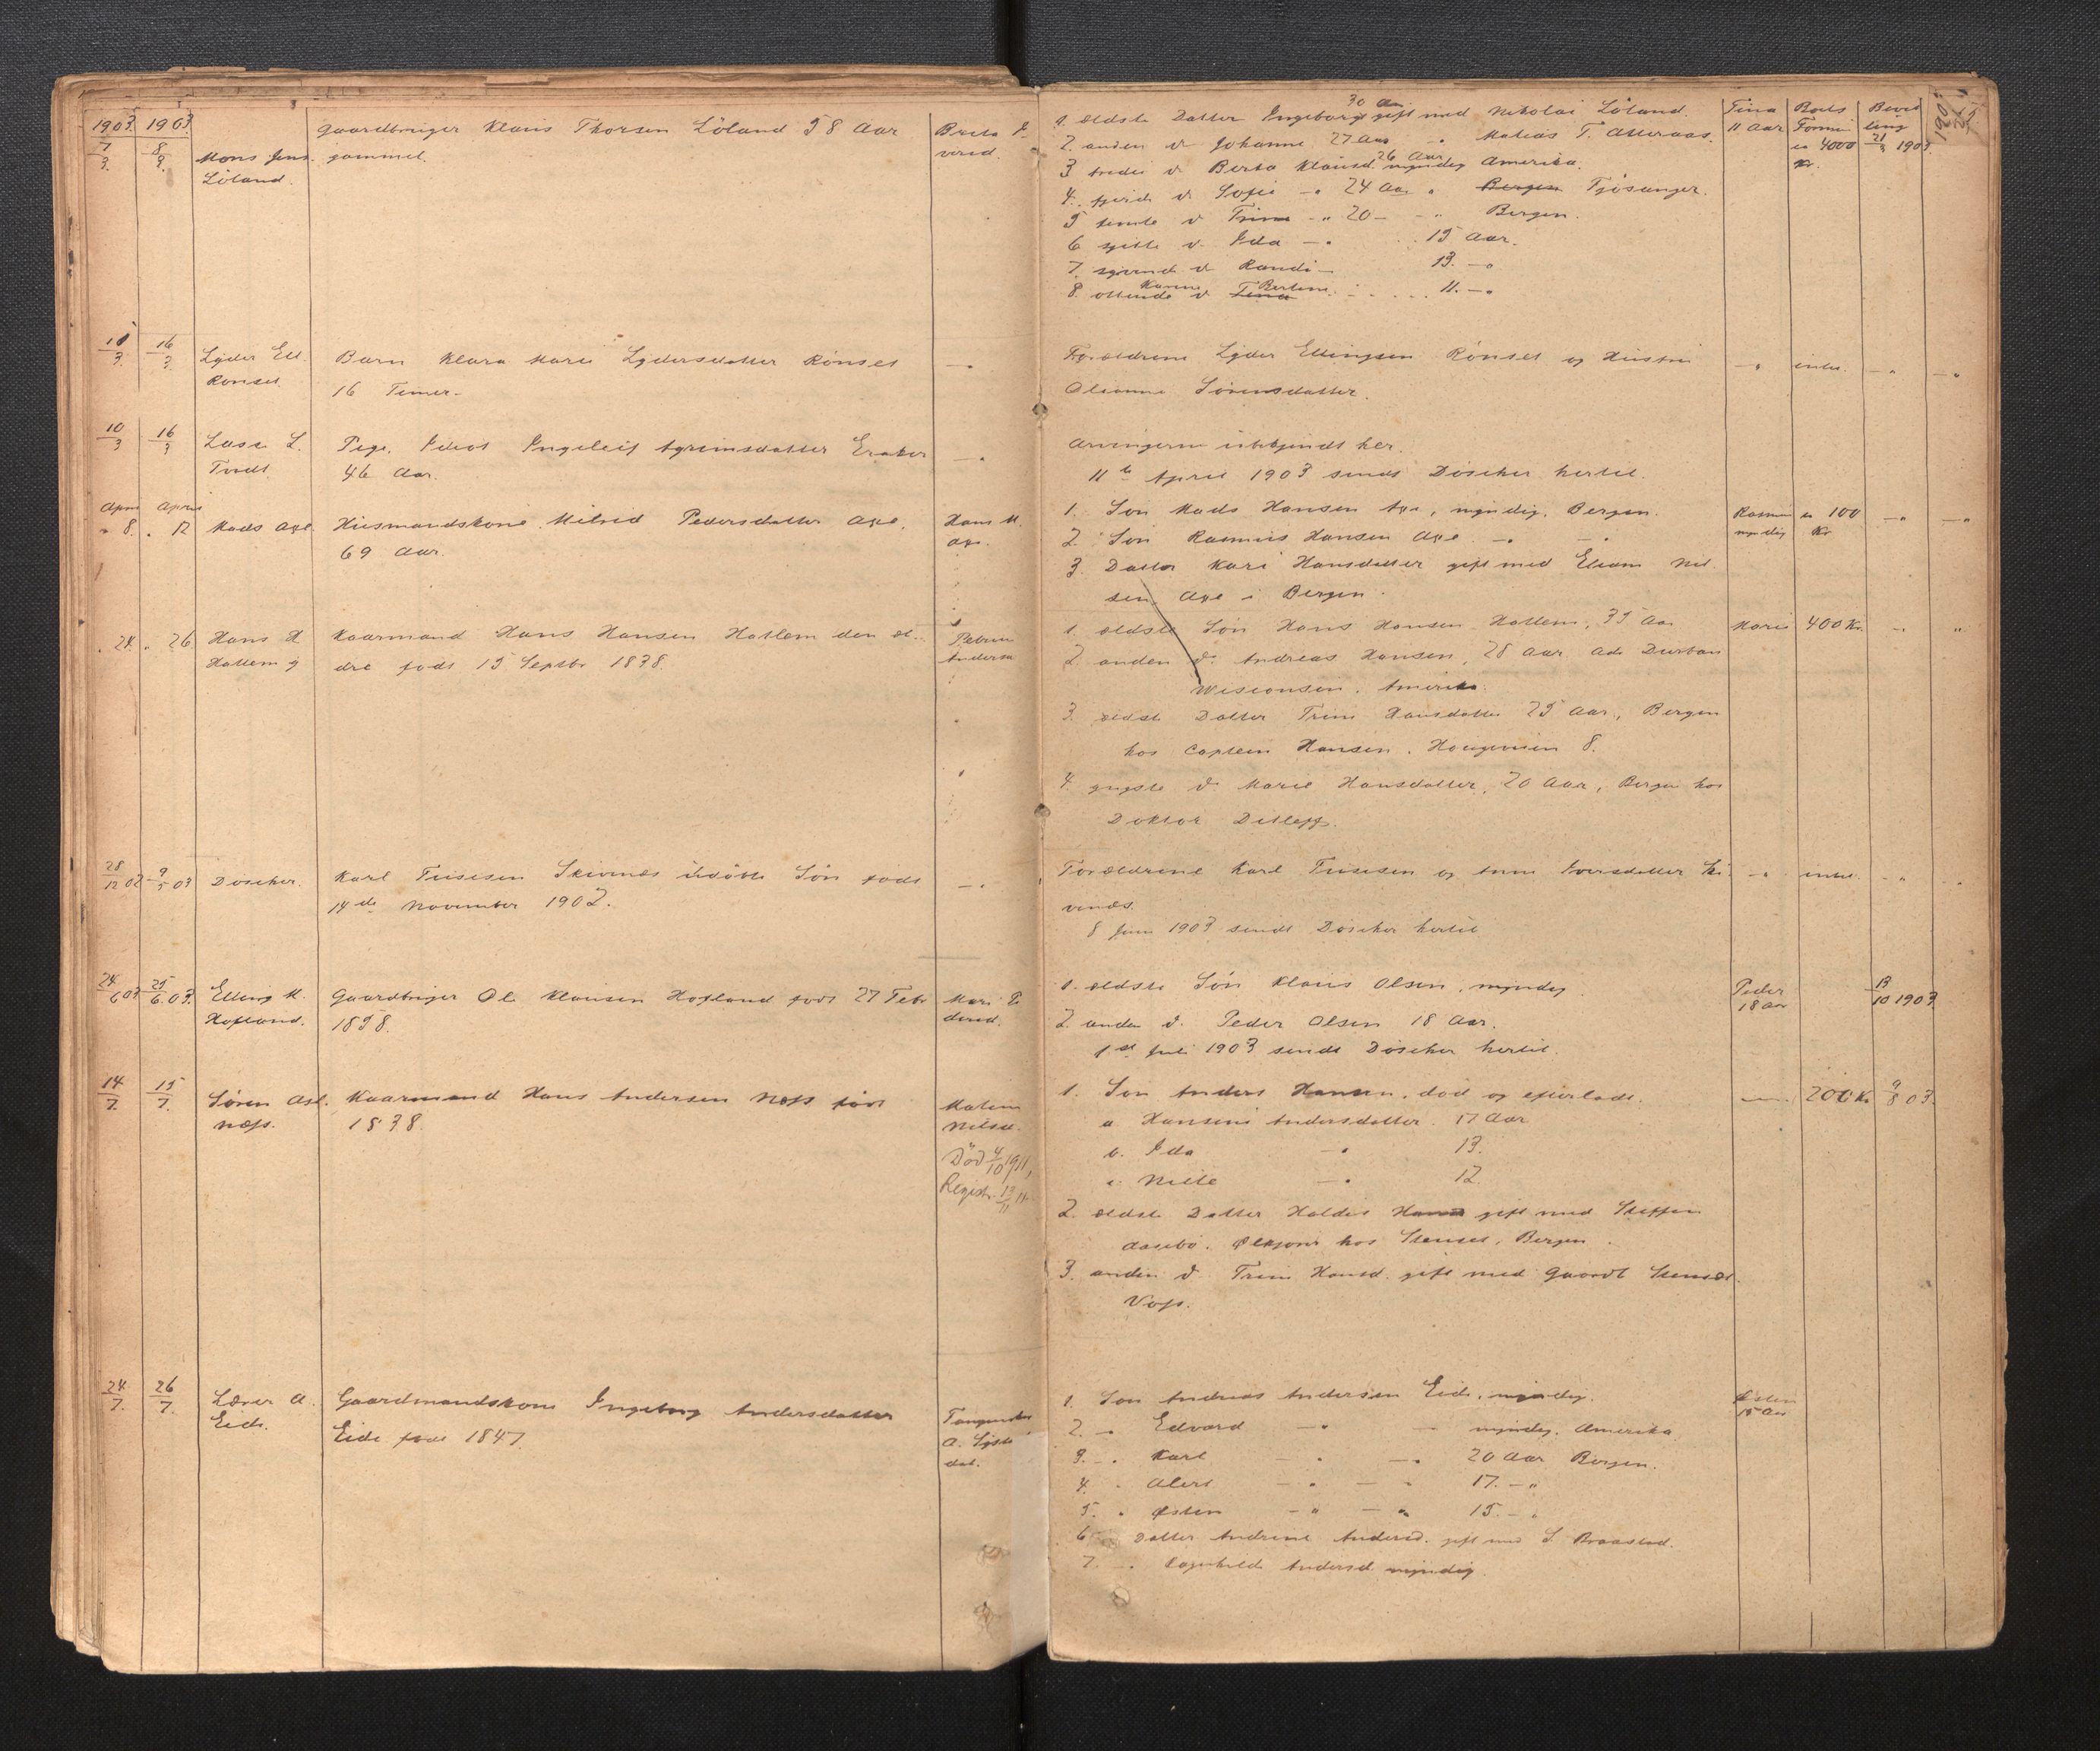 1903 1903
7/3 8/3 Mons Jens. Löland.
Gaardbruger Klaus Thorsen Löland 58 Aar
gammel.
Brita
10/3 16/3 Lyder Ell. Rönset
Barn Klara Marie Lydersdatter Rönset
16 Timer
10/3 16/3 Lasse L. Tvedt.
Pige, Idiot Ingeleif Agrimsdatter
46 Aar.
April April
8. 12 Mads Axe.
Husmandskone Milrid Pedersdatter Axe,
69 Aar.
Hans M. Axe.
24. 26 Hans H Hatlem
Kaarmand Hans Hansen Hatlem den æl-
dre födt 15 Septbr 1838.
Petrine Andersd
28/12 02 9/5 03 Döscher.
Karl Skivenes udöbte Sön födt
14de November 1902.
24/6 03 25/6 03. Elling M. Hofland.
Gaardbruger Ole Klausen Hofland födt 27 Febr
1858.
Mari
14/7 15/7 Sören Asl. Næss.
Kaarmand Hans Andersen Næss födt
1838.
Malene Nilsd.
Död 4/10 1911,
Registr. 13/11 11.
24/7. 26/7. Lærer A. Eide.
Gaardmandskone Ingeborg Andersdatter
Eide födt 1847.
A.
1. ældste Datter Ingeborg 30 Aar gift med Nikolai Löland.
2. anden d Johanne 27 Aar " Matias T. Atteraas.
3 tredie d Berta Klausd. 26 Aar myndig Amerika.
4. fjerde d Sofie " 24 Aar " Bergen Fjösanger.
5 femte d Trine " 20 - " Bergen.
6 sjette d. Ida " 15 Aar.
7. syvende d Randi " 13. "
8. ottende d Tina Karine Bertine 11. "
Tina 11 Aar
Boets Formue ca 4000 Kr.
Bevilling 21/3 1903.
Forældrene Lyder Ellingsen Rönset og Hustru
Olianna Sörensdatter.
intet.
Arvingerne ubekjendt her.
11te April 1903 sendt Döscher hertil.
1. Sön Mads Hansen Axe, myndig, Bergen.
2. Sön Rasmus Hansen Axe. " "
3. Datter Kari Hansdatter gift med Eliam Nil
sen Axe i Bergen.
Rasmus myndig
ca 100 Kr
1. ældste Sön Hans Hansen Hatlem, 35 Aar
2 anden d. Andreas Hansen, 28 Aar Adr
Wisconsen. Amerika.
3. ældste Datter Trine Hansdatter 25 Aar, Bergen
hos Captein Hansen. 8.
4. yngste d. Marie Hansdatter, 20 Aar, Bergen hos
Doktor Detleff.
Marie 400 Kr.
Forældrene Karl og Anne Iversdatter Ski
venes.
8 Juni 1903 sendt Döscher hertil
intet.
1. ældste Sön Klaus Olsen, myndig.
2. anden d. Peder Olsen 18 Aar.
1ste Juli 1903 sendt Döscher hertil.
Peder 18 Aar
13/10 1903
1. Sön Anders Hansen, död og efterladt.
a Hansine Andersdatter. 17 Aar
b. Ida " 13.
c. Nille " 12.
2. ældste Datter gift med Steffen
hos Bergen.
3. anden d. Trine Hansd. gift med
Voss.
200 Kr 9/8 03.
1. Sön Andreas Andersen Eide, myndig.
2. " Edvard " - myndig. Amerika
3. " Karl - " - " 20 Aar Bergen.
4. " Alert - " - " 17. - "
5. " Østen - " - " 15. - "
6 Datter Andrine Andersd. gift med S. Braastad.
7. - " Ragnhild Andersd. myndig.
Østen 15 Aar